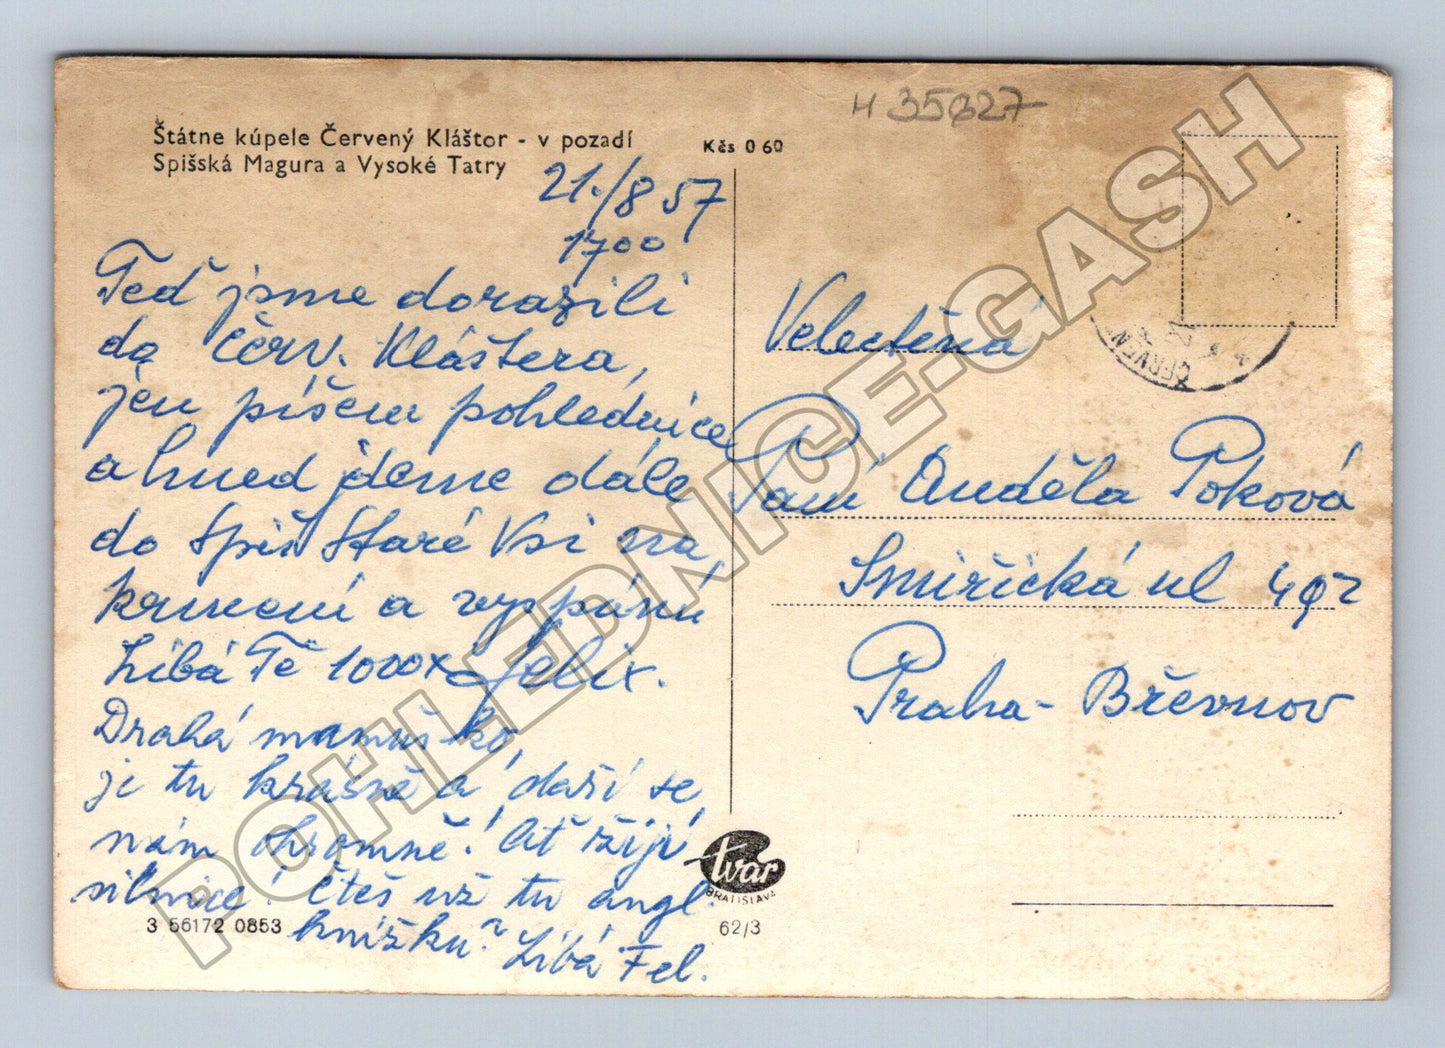 Štátne kúpele Červený Kláštor - v pozadí
Spišská Magura a Vysoké Tatry
Kčs 0 60
21./8 57
1700
Teď jsme dorazili
do Červ. Kláštera,
jen píšem pohlednice
a hned jdeme dále
do Spiš Staré Vsi na
krmení a vyspání
Líbá Tě 1000x Felix.
Drahá mamuško,
je tu krásně a daří se
nám ohromně! Ať žijí
silnice! Čteš už tu angl.
knížku? Líbá Fel.
Velectěná
Paní Anděla Poková
Smiřická ul
Praha - Břevnov
ČERVEN
tvar
BRATISLAVA
3 56172 0853
62/3
POHLEDNICE-GASH